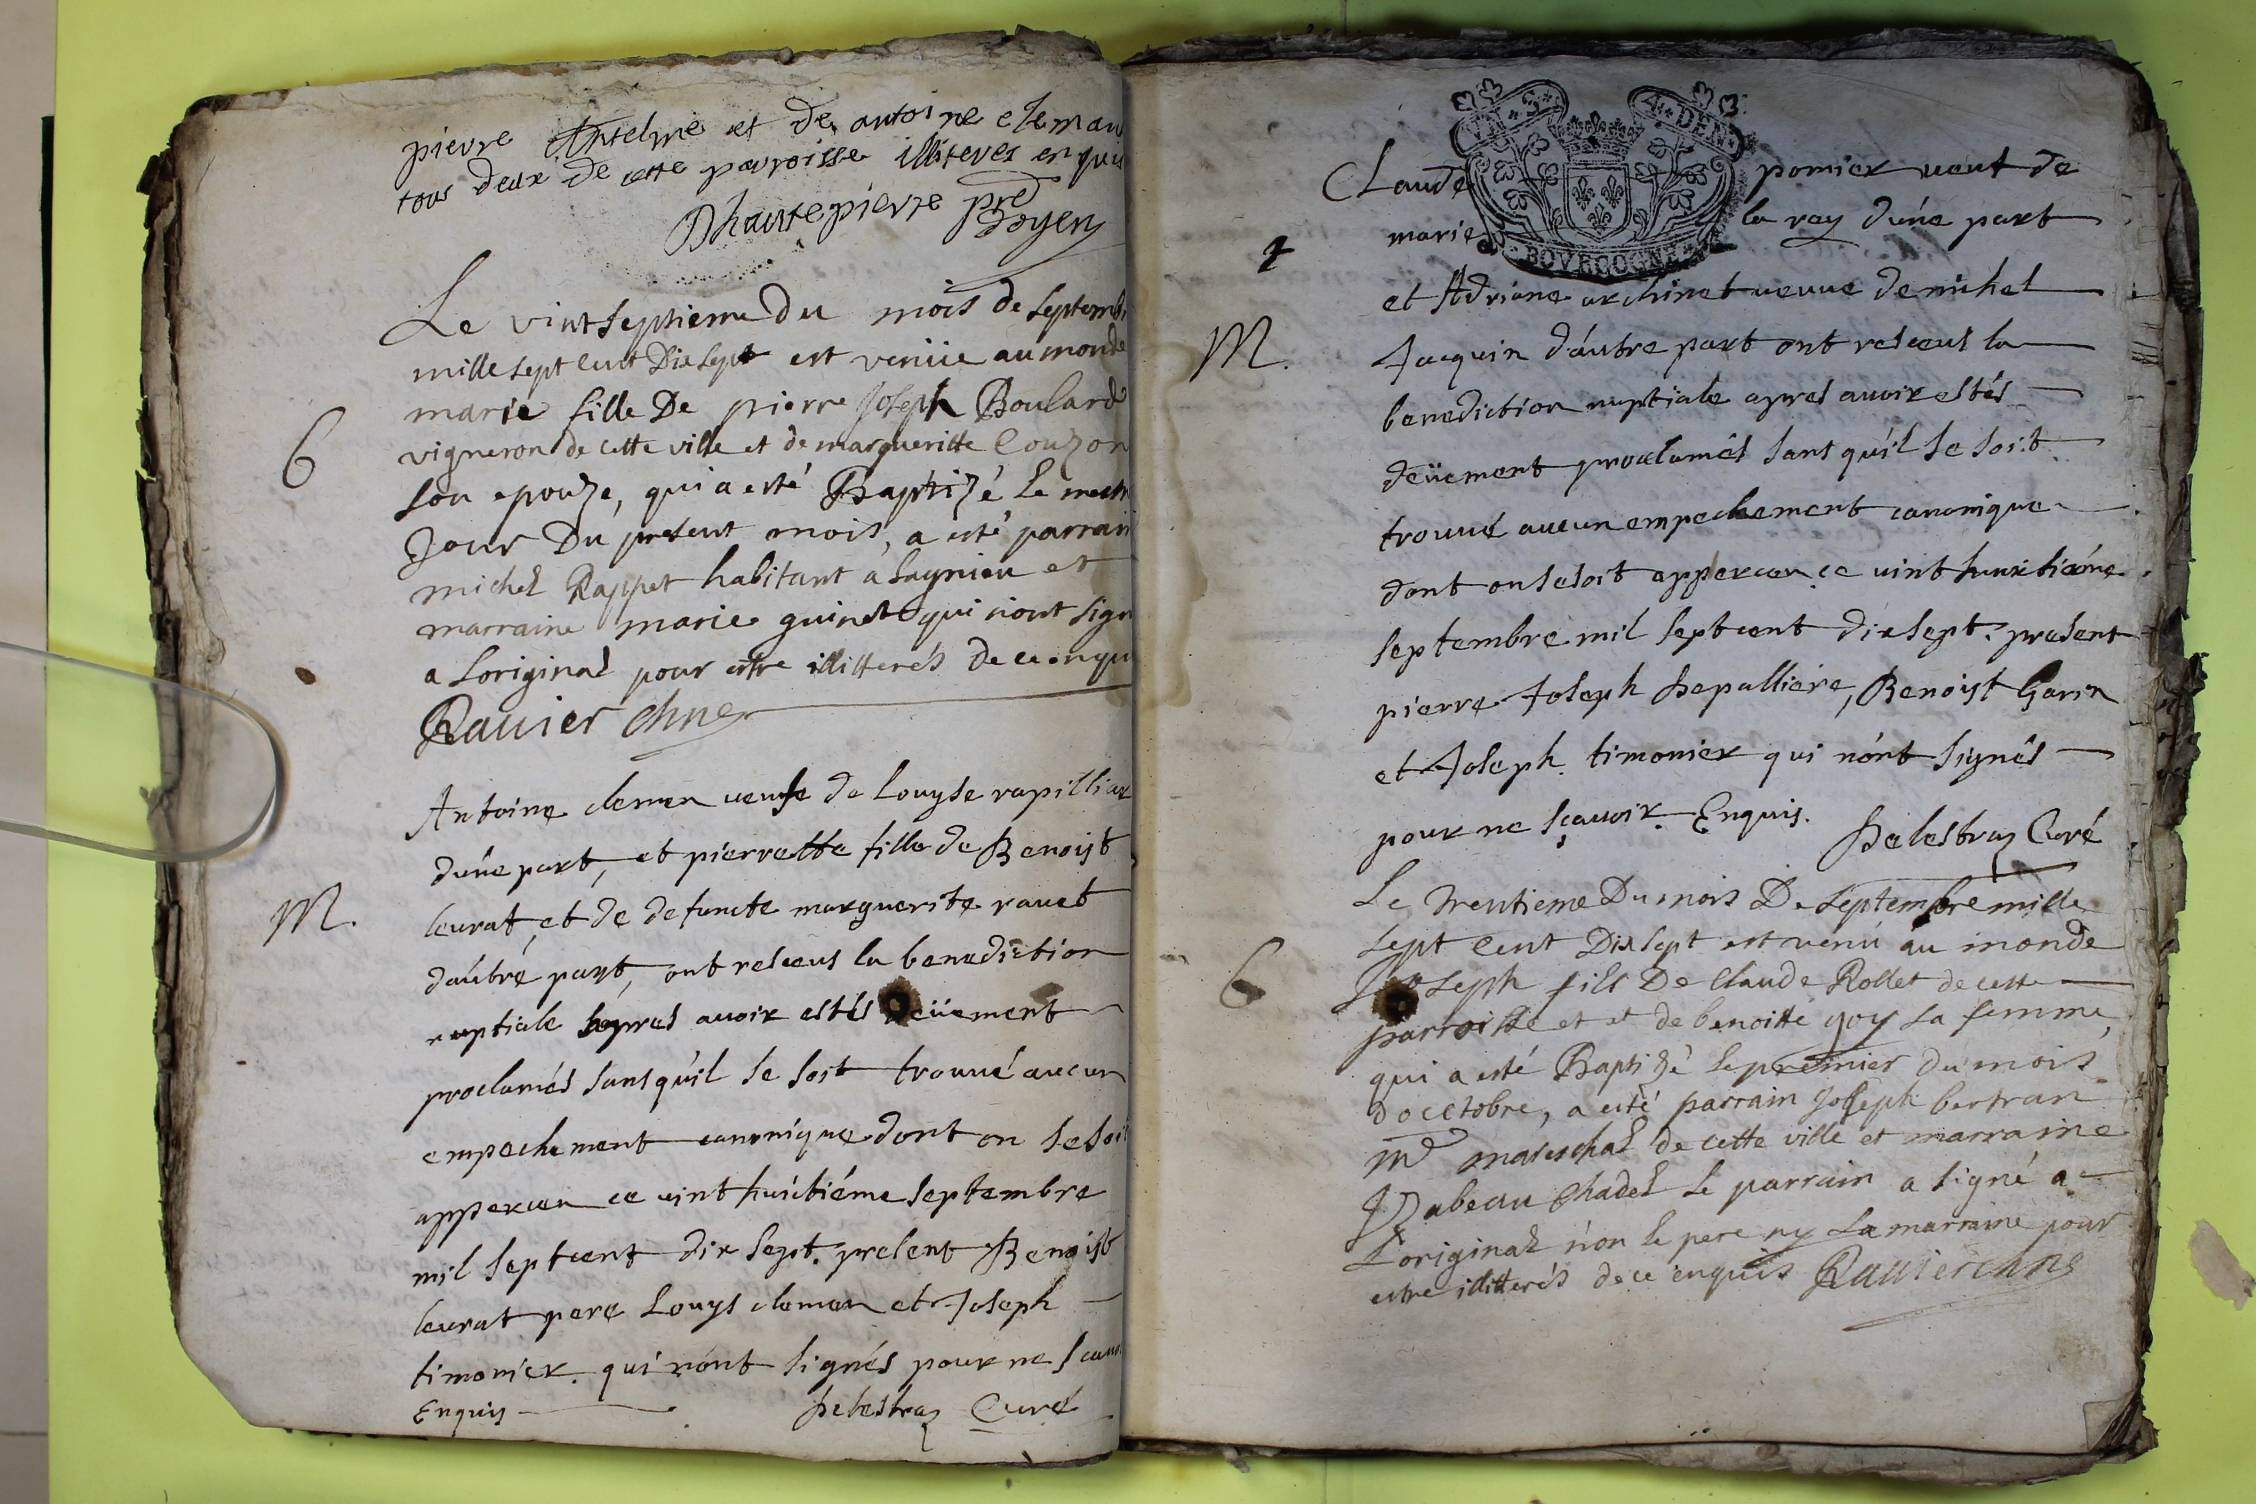 pierre Anselme et de antoine cleman
tous deux de cette parroisse illiteres enquis
Dhautepierre pre
Doyen
Le vintseptieme du mois de septemb
mille sept cent Dix sept est venüe au monde
marie fille De pierre Joseph Boulard
vigneron de cette ville et de margueritte Couzon
son epouze, qui a esté Baptizé le mesm
Jour Du present mois, a esté parrain
6
michel Rappet habitant a lagnieu et
marraine marie guinet qui n'ont sign
a Loriginal pour estre illitterés de ce enqu
Ravier chne
Antoine clemen veufe de Louyse rapilliar
d'úne part, et pierrette fille de Benoist
M.
leurat, et de defuncte marguerite ravet
d'aútre part, ont resceus la benediction
nuptiale apres avoir estés deüement
proclamés sans qu'il se soit trouvé aucun
empechement canonique dont on se soit
apperceu ce vint huictiéme septembre
mil sept cent dix sept. present Benoist
leurat pere Louys clemen et Joseph
timonier. qui n'ont signés pour ne scau
Enquis Delestraz Curé
VN S 4 DEN
BOVRGOGNE
Claude pomier veuf de
marie la ray d'úne part
et Adriane archinet veuve de michel
M.
Jacquin d'aútre part ont resceus la
benediction nuptiale apres avoir estés
deüement proclamés sans qu'il se soit
trouvé aucun empechement canonique
dont on se soit apperceu ce vint huictiéme
septembre mil sept cent dix sept. present
pierre Joseph Depalliere, Benoist Garin
et Joseph timonier qui n'ont signés
pour ne sçavoir. Enquis. Delestraz Curé
Le trentieme Du mois De septembre mille
sept cent Dix sept est venú au monde
6
Joseph fils De Claude Rollet de cette
parroisse et et de benoitte goy sa femme,
qui a esté Baptizé le premier du mois
d'octobre, a esté parrain Joseph bertran
me mareschal de cette ville et marraine
Ysabeau Chadel le parrain a signé a
L'original n'on le pere ny la marraine pour
estre illitterés de ce enquis Ravier chne